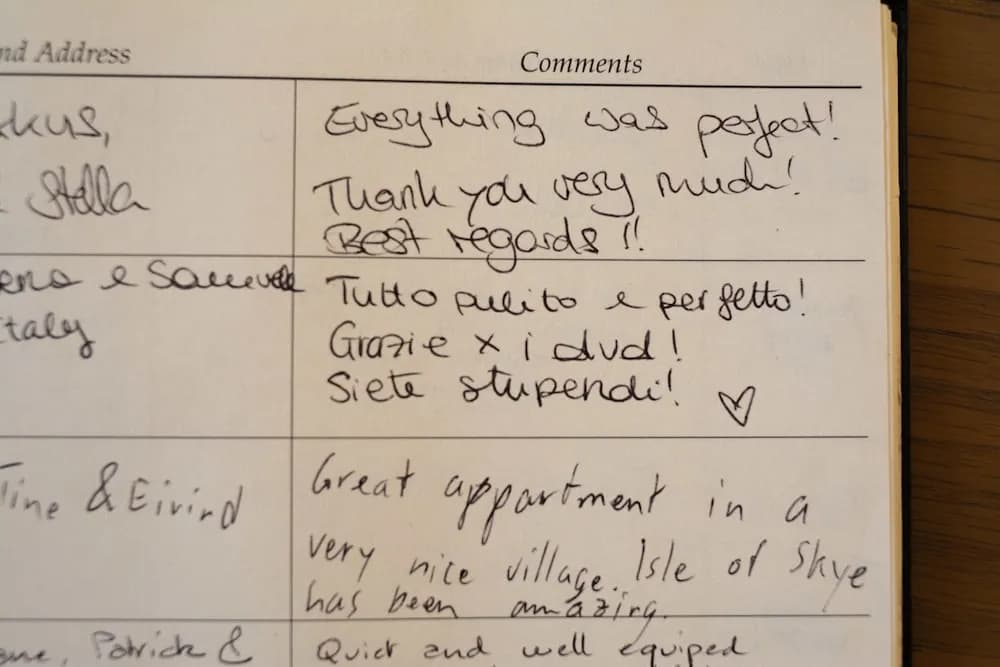 nd Address
Comments
kus,
Stella
Everything was perfect!
Thank you very much!
Best regards !!
e Samuele
Italy
Tutto pulito e perfetto!
Grazie x i dvd!
Siete stupendi!
Tine & Eivind
Great appartment in a
very nice village. Isle of Skye
has been amazing.
Patrick &
Quiet and well equiped